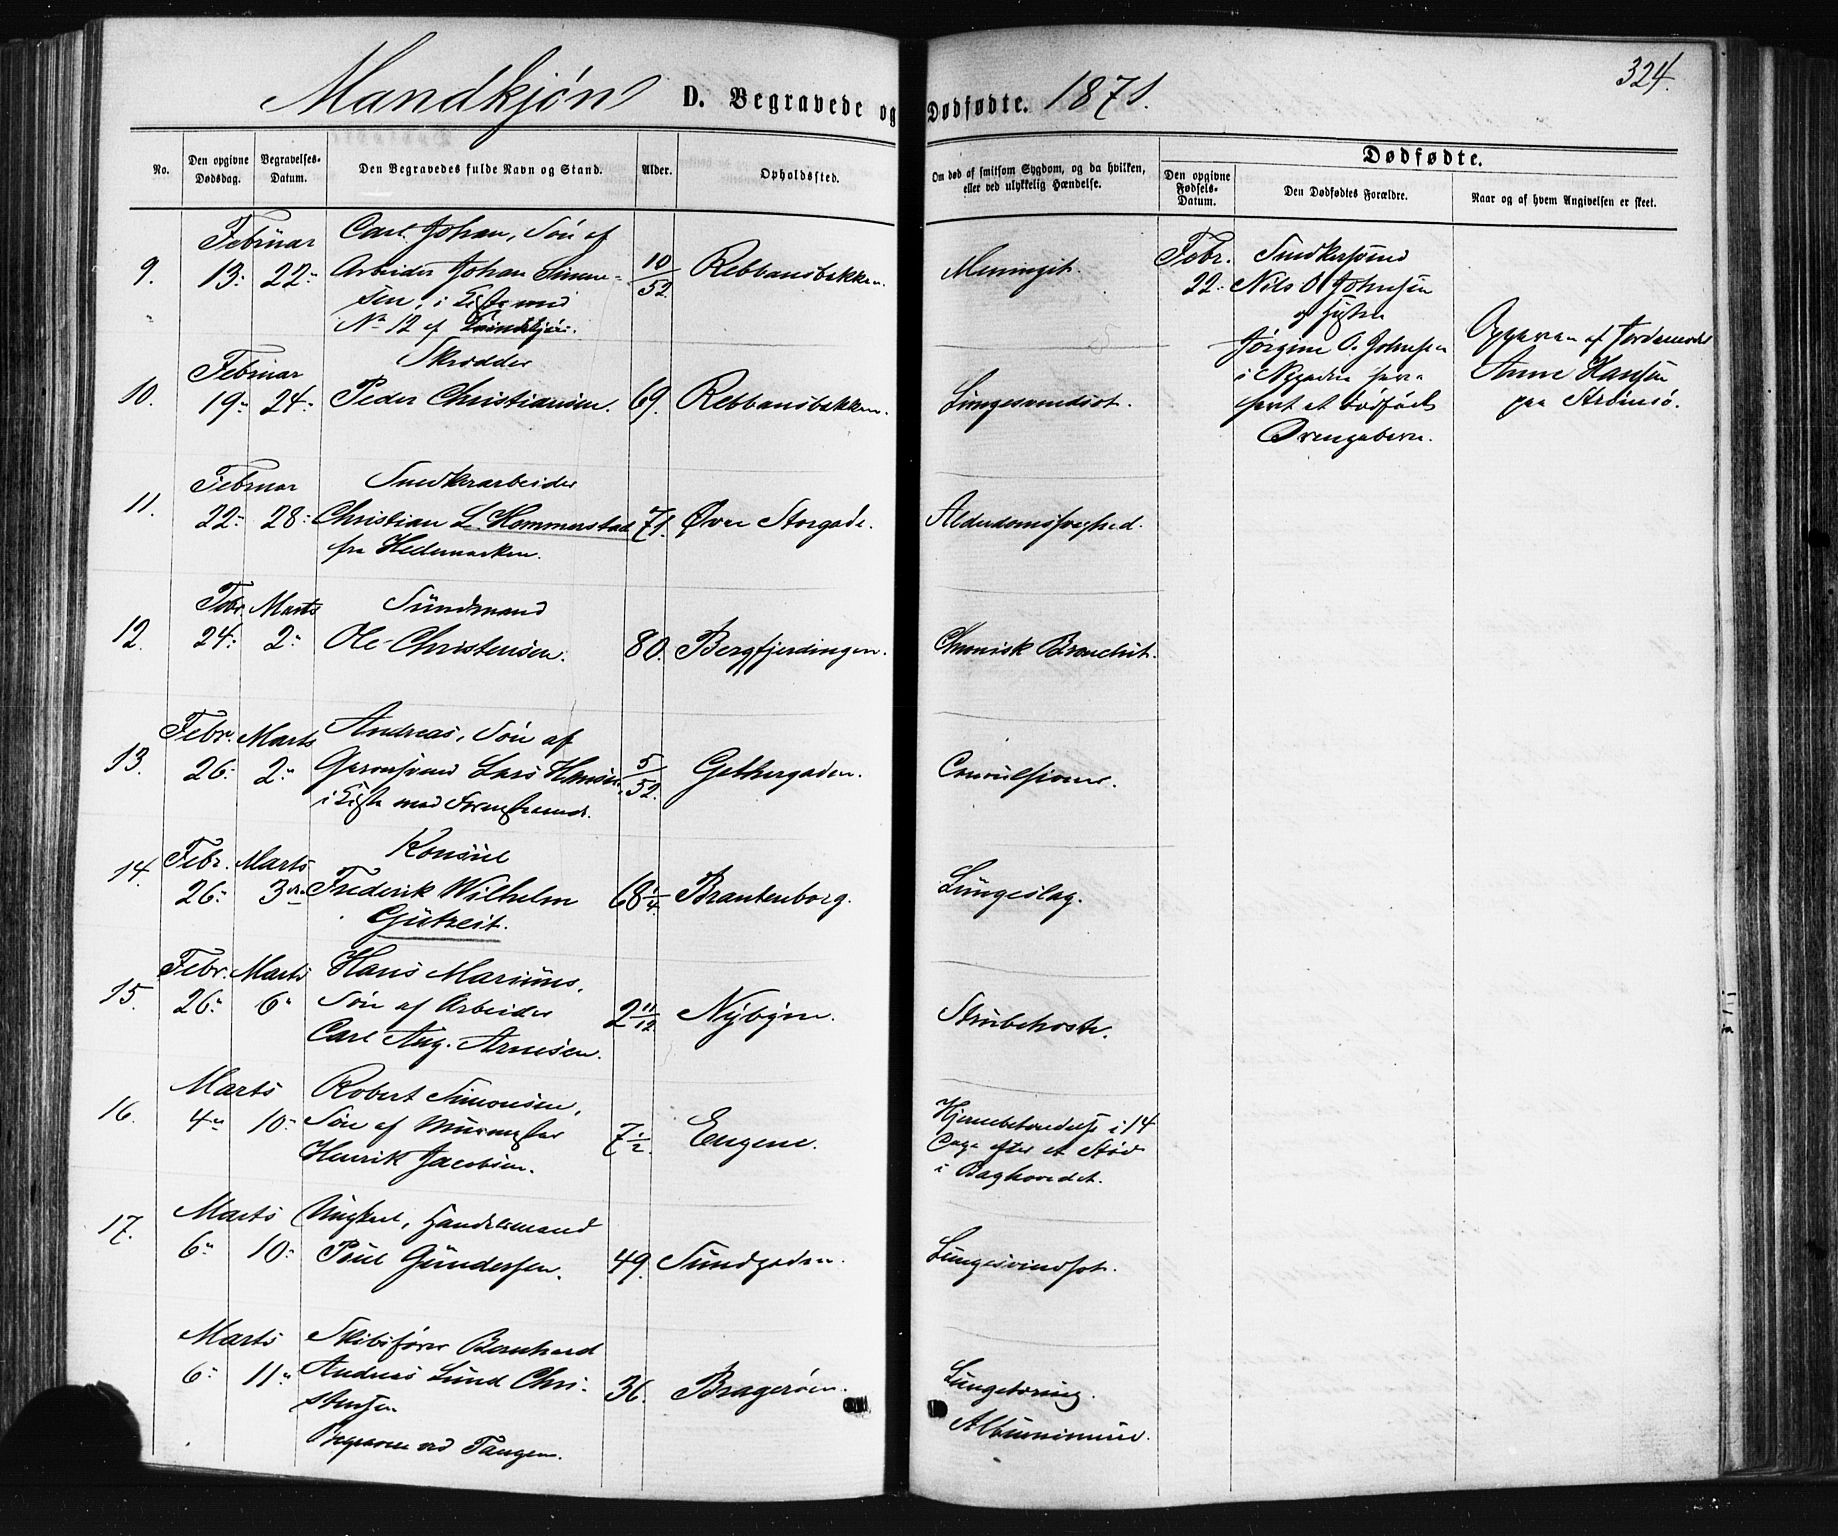 324.
Mandkjøn D. Begravede og Dødfødte. 1871.
No.
Den opgivne Dødsdag.
Begravelses-Datum.
Den Begravedes fulde Navn og Stand.
Alder.
Opholdssted.
Om død af smitsom Sygdom, og da hvilken, eller ved ulykkelig Hændelse.
Dødfødte.
Den opgivne Fødsels-Datum.
Den Dødfødtes Forældre.
Naar og af hvem Angivelsen er skeet.
9.
Februar
13. 22.
Carl Johan, Søn af
Arbeider Johan
sen, i Kiste med
No 12 af
10/52
Rebbansbakken.
Meningit.
Febr.
22.
Snedkersvend
Nils O. Johnsen
og Hustru
Jørgine O. Johnsen
i Nygaden
født et dødfødt
Drengebarn.
af Jordemoder
Anne Hansen
paa Strømsø.
10.
Februar
19. 24.
Skrædder
Peder Christiansen.
69.
Rebbansbakken.
Lungesvindsot.
11.
Februar
22. 28.
Snedkerarbeider
Christian L. Hommerstad
fra Hedemarken.
71.
Øvre Storgade.
Alderdomssvaghed.
12.
Febr. Marts
24. 2.
Sundmand
Ole Christensen.
80.
Bergfjerdingen.
Chronisk Bronchit.
13.
Febr. Marts
26. 2.
Andreas, Søn af
Garversvend Lars Hansen
i Kiste med
5/52.
Gethergaden.
Convulsioner.
14.
Febr. Marts
26. 3die
Konsul
Frederik Wilhelm
Gutzeit.
68 1/4.
Brantenborg.
Lungeslag.
15.
Febr. Marts
26. 6.
Hans Marinus,
Søn af Arbeider
Carl Aug. Arnesen.
2 11/12
Nybyen.
Strubehoste.
16.
Marts
4. 10.
Robert Simonsen,
Søn af Murmester
Henrik Jacobsen.
7 1/2.
Engene.
Hjernebetændelse i 14
Dage efter et Stød
i Baghovedet.
17.
Marts
6. 10.
Ungkarl, Handelsmand
Poul Gundersen.
49.
Sundgaden.
Lungesvindsot.
Marts
6. 11.
Skibsfører Bernhard
Andreas Lund Chri-
stensen
Begraven ved Tangen.
36.
Bragerøen.
Lungetæring.
Albuminurie.